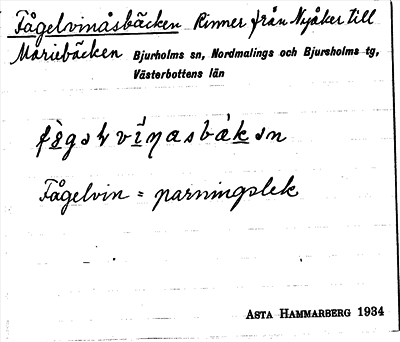 Fågelvinåsbäcken Rinner från Nyåker till
Mariebäcken Bjurholms sn, Nordmalings och Bjurholms tg,
Västerbottens län
Fågelvin = parningslek
ASTA HAMMARBERG 1934